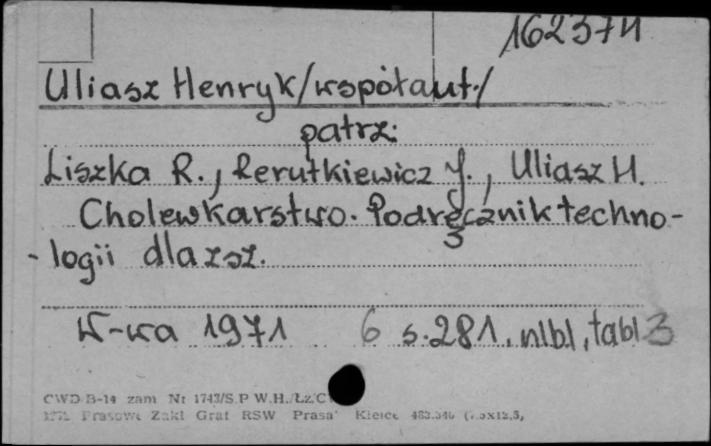 162374
Uliasz Henryk/współaut./
patrz:
Liszka R., Rerutkiewicz J., Uliasz H.
Cholewkarstwo. Podręcznik techno-
-logii dla zsz.
W-wa 1971 6 s. 281, nlb1, tabl 3
CWD B-14 zam Nr 1743/S.P W.H./Łz.
Prasowe Zakł Graf RSW Prasa Kielce